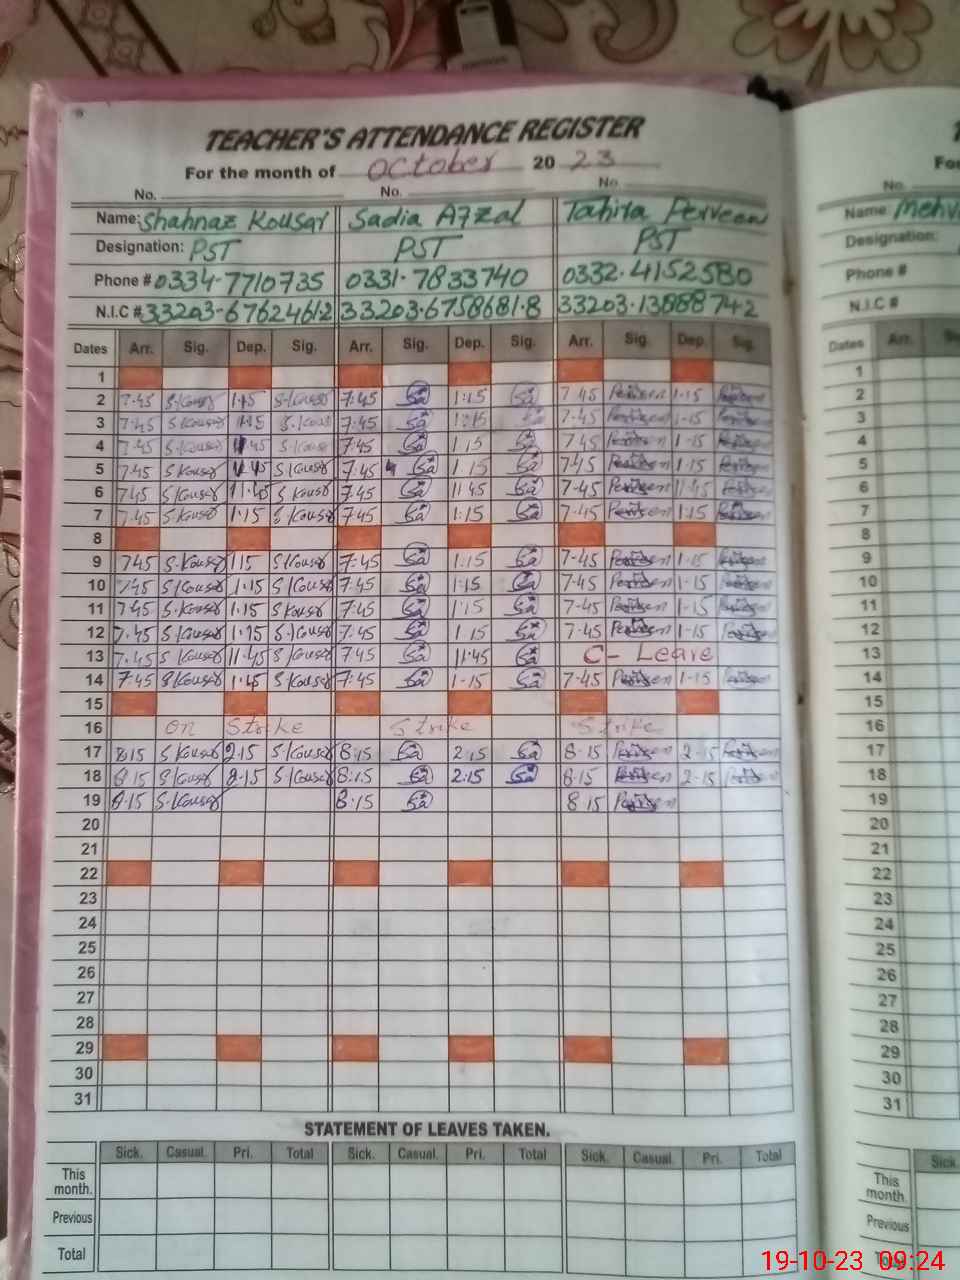 TEACHER'S ATTENDANCE REGISTER
For the month of October 20 23
No. No. No.
Name: Shahnaz Kousar Sadia Afzal Tahira Perveen
Designation: PST PST PST
Phone # 0334-7710735 0331-7833740 0332-4152580
N.I.C # 33203-6762461-2 33203-6758681-8 33203-13888742
Dates Arr. Sig. Dep. Sig. Arr. Sig. Dep. Sig. Arr. Sig. Dep. Sig.
1
2 7.45 S.Kousar 1.15 S.Kousar 7.45 1.15 7.45 Perveen 1-15
3 7.45 S.Kousar S.Kousar 7.45 7.45 Perveen 1-15
4 7.45 S.Kousar S.Kousar 7.45 1.15 7.45 Perveen 1-15
5 7.45 S.Kousar S.Kousar 7.45 1.15 7.45 Perveen 1.15
6 7.45 S.Kousar 11.45 S.Kousar 7.45 11.45 7-45 Perveen 11.45
7 7.45 S.Kousar 1.15 S.Kousar 7.45 1.15 7.45 Perveen 1.15
8
9 7.45 S.Kousar 1.15 S.Kousar 7.45 1.15 7-45 Perveen 1-15
10 7.45 S.Kousar 1.15 S.Kousar 7.45 1.15 7-45 Perveen 1-15
11 7.45 S.Kousar 1.15 S.Kousar 7.45 1.15 7-45 Perveen 1-15
12 7.45 S.Kousar 1.15 S.Kousar 7.45 1.15 7-45 Perveen 1-15
13 7.45 S.Kousar 11.45 S.Kousar 7.45 11.45 C- Leave
14 7.45 S.Kousar S.Kousar 7.45 1-15 7.45 Perveen 1-15
15
16 on Strike Strike Strike
17 8.15 S.Kousar 2.15 S.Kousar 8.15 2.15 8.15 Perveen 2-15 Perveen
18 8.15 S.Kousar 2.15 S.Kousar 8.15 2:15 8.15 Perveen 2-15 Perveen
19 8.15 S.Kousar 8.15 8.15 Perveen
20
21
22
23
24
25
26
27
28
29
30
31
STATEMENT OF LEAVES TAKEN.
Sick. Casual. Pri. Total Sick. Casual. Pri. Total Sick. Casual. Pri. Total
This month.
Previous
Total
No.
Name: Mehv
Designation:
Phone #
N.I.C #
Dates Arr.
1
2
3
4
5
6
7
8
9
10
11
12
13
14
15
16
17
18
19
20
21
22
23
24
25
26
27
28
29
30
31
Sick
This month.
Previous
19-10-23 09:24